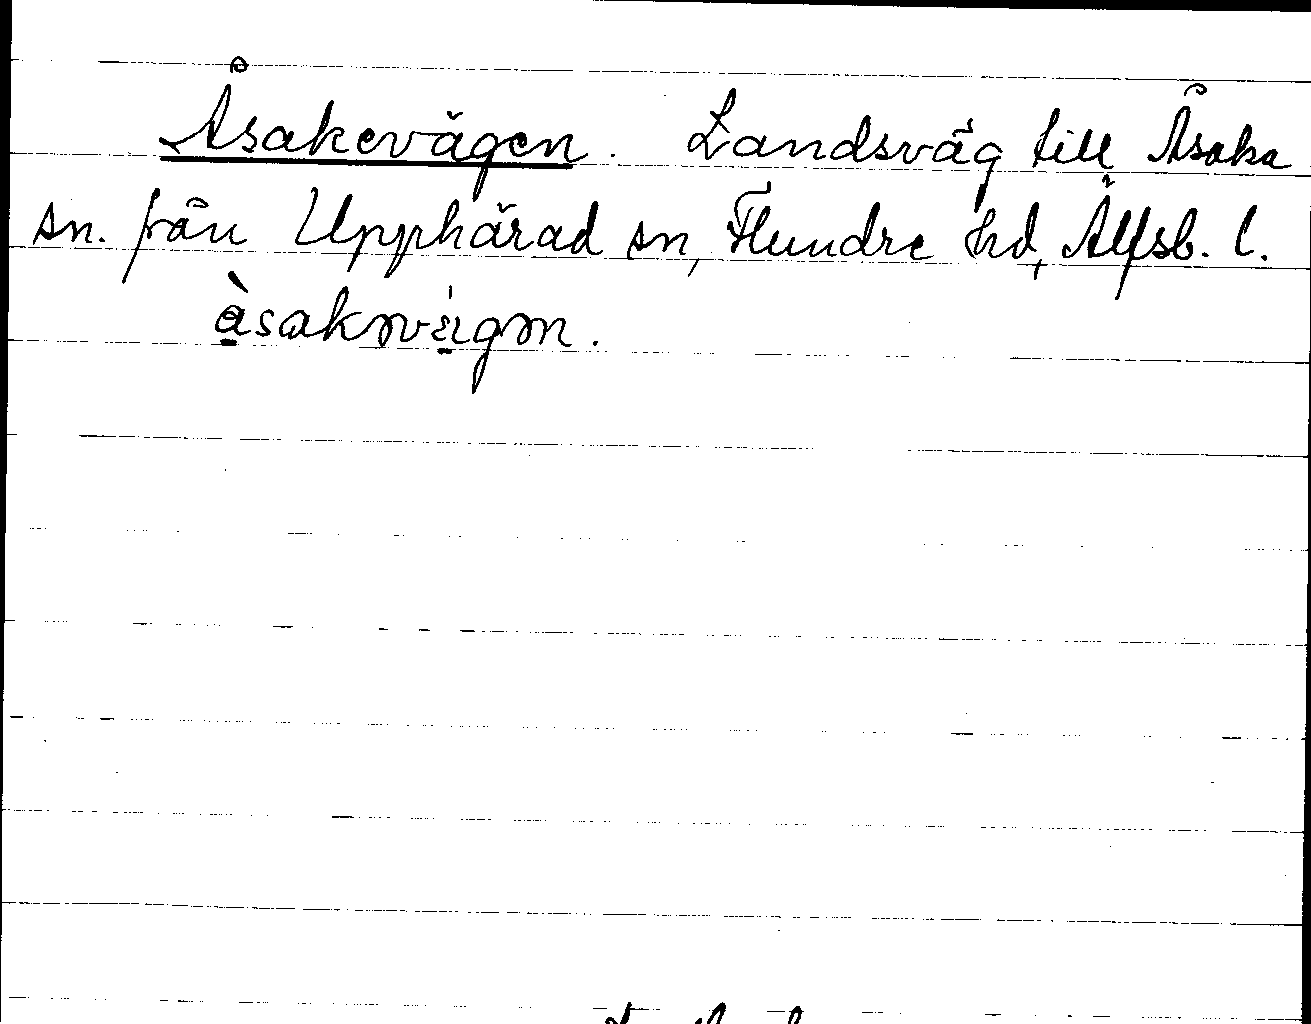 Åsakevägen. Landsväg till Åsaka
sn. från Upphärad sn, Flundre hd, Älfsb. l.